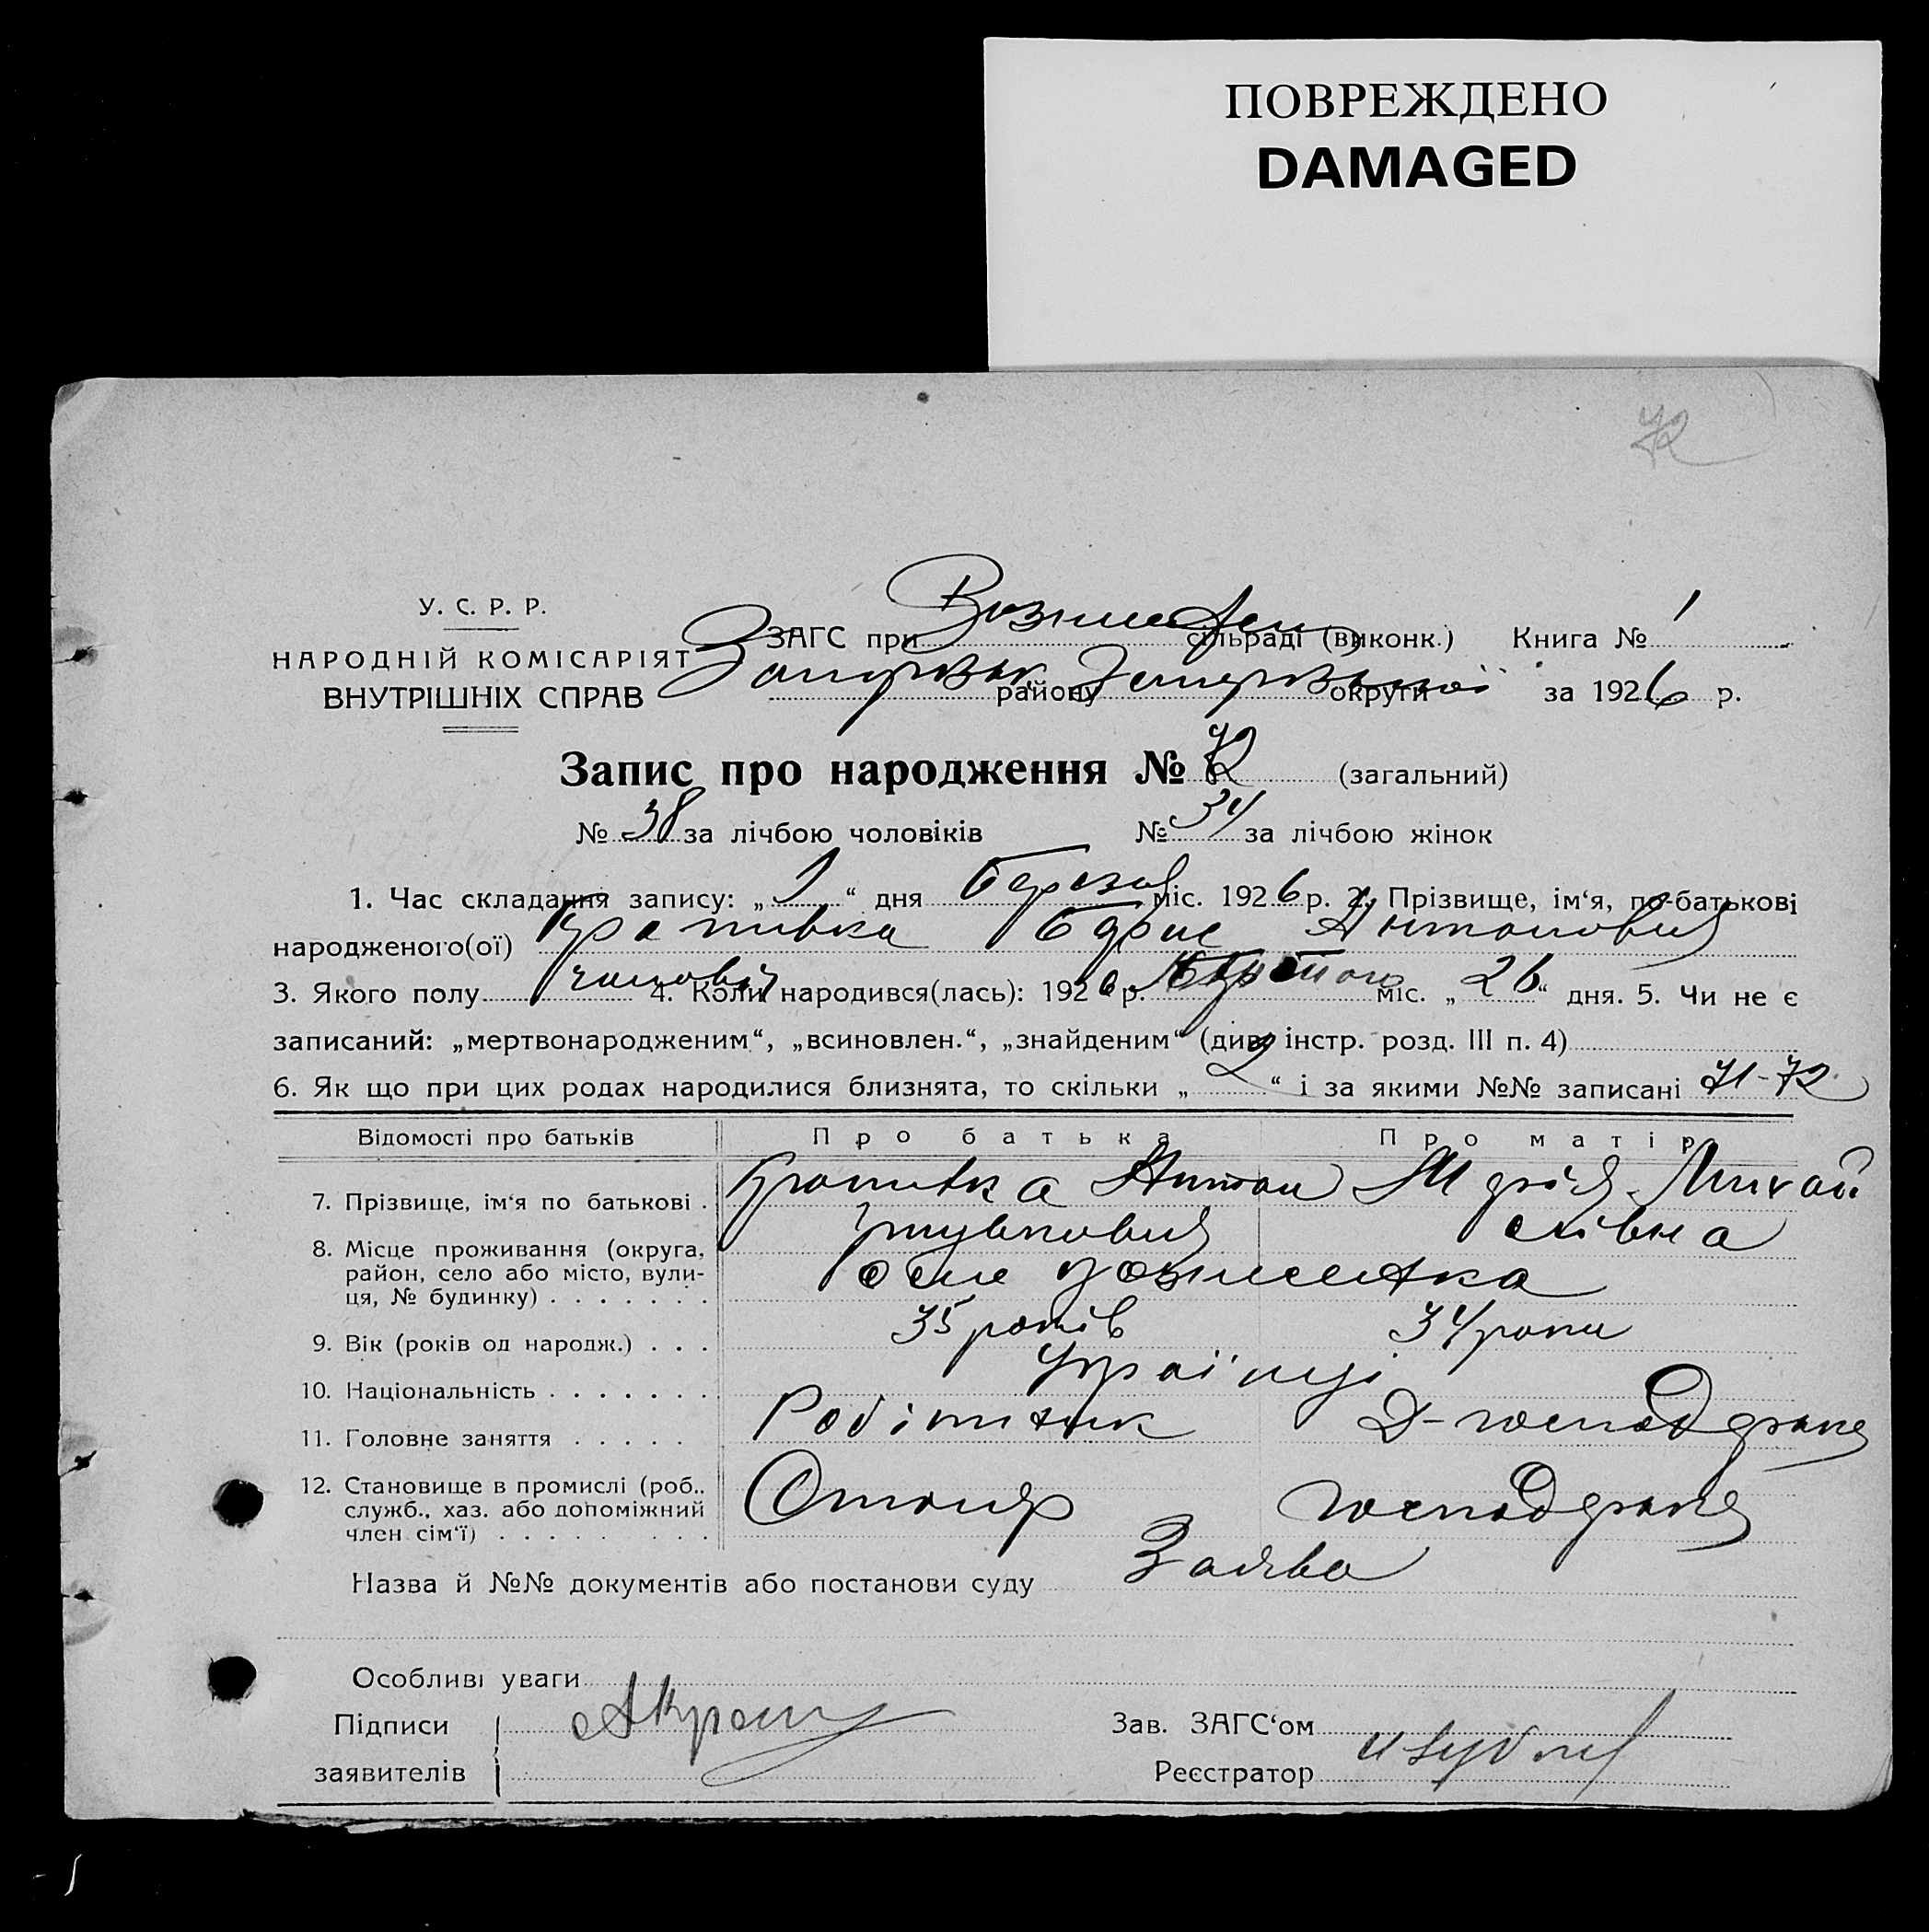 ПОВРЕЖДЕНО
DAMAGED
72
У. С. Р. Р.
НАРОДНІЙ КОМІСАРІЯТ
ВНУТРІШНІХ СПРАВ
ЗАГС при Вознесен сільраді (виконк.) Книга № 1
Запорізьк району Запорізької округи за 1926 р.
Запис про народження № 72 (загальний)
№ 38 за лічбою чоловіків № 34 за лічбою жінок
1. Час складання запису: „ 1 “ дня березня міс. 1926 р. 2. Прізвище, ім‘я, по-батькові
народженого(ої) Кропивка Борис Антонович
3. Якого полу чоловіч 4. Коли народився(лась): 1926 р. міс. „ 26 “ дня. 5. Чи не є
записаний: „мертвонародженим“, „всиновлен.“, „знайденим“ (див. інстр. розд. III п. 4)
6. Як що при цих родах народилися близнята, то скільки „ 2 “ і за якими №№ записані 71-72
Відомості про батьків Про батька Про матір
7. Прізвище, ім‘я по батькові . Кропивка Антон Марія Михай
лівна
8. Місце проживання (округа,
район, село або місто, вули-
ця, № будинку) . . . . . . . село Вознесенка
9. Вік (років од народж.) . . . 35 років 34 роки
10. Національність . . . . . . . Українці
11. Головне заняття . . . . . Робітник Д-господарка
12. Становище в промислі (роб..
служб., хаз. або допоміжний
член сім‘ї) . . . . . . . . Столяр господарка
Назва й №№ документів або постанови суду Заява
Особливі уваги
Підписи
заявителів
Зав. ЗАГС‘ом
Реєстратор